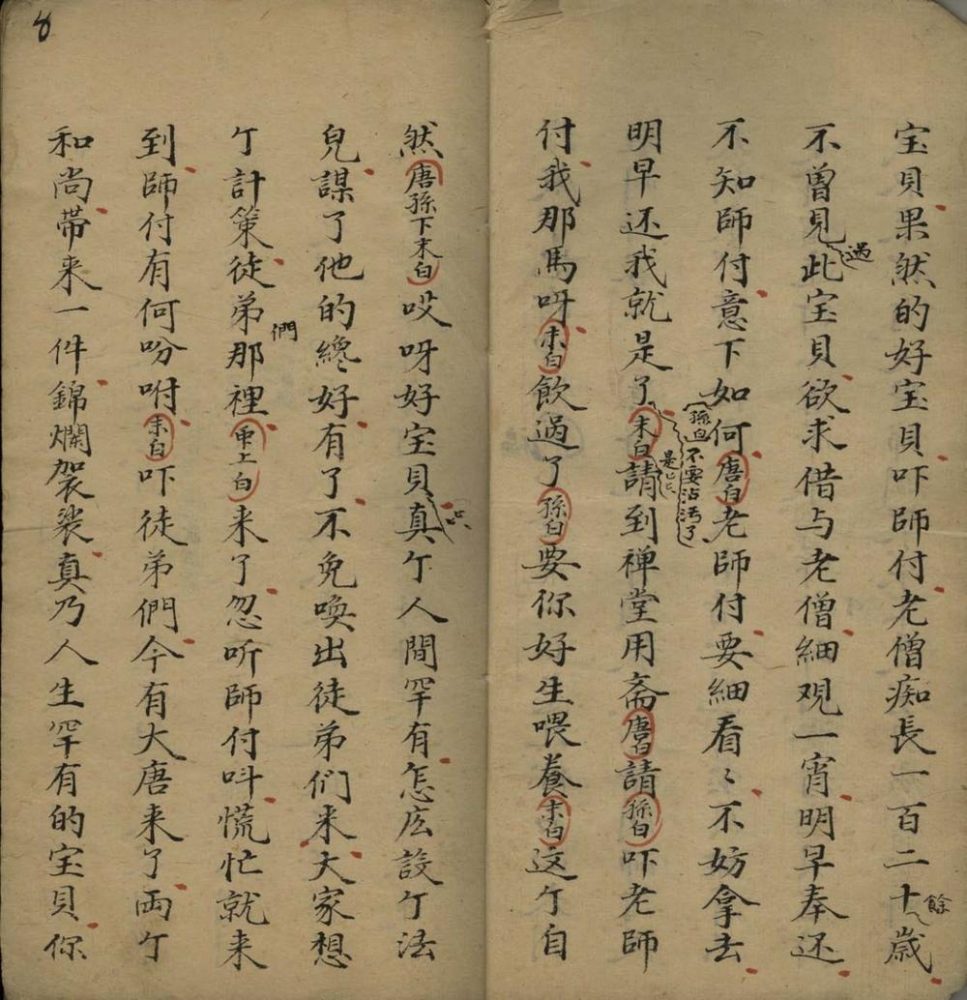 宝貝果然的好宝貝吓師付老僧痴長一百二十餘歳
不曾見過此宝貝欲求借与老僧細观一宵明早奉还
不知師付意下如何唐白老師付要細看〻不妨拿去
孫白不要沾汚了
是〻
明早还我就是了末白請到禅堂用斋唐白請孫白吓老師
付我那馬呀末白飲過了孫白要你好生喂養末白这个自
然唐孫下末白哎呀好宝貝真个人間罕有怎庅設个法
兒謀了他的纔好有了不免喚出徒弟们来大家想
个計策徒弟們那裡重上白来了忽听師付呌慌忙就来
到師付有何吩咐末白吓徒弟們今有大唐来了両个
和尚带来一件錦斕袈裟真乃人生罕有的宝貝你
8